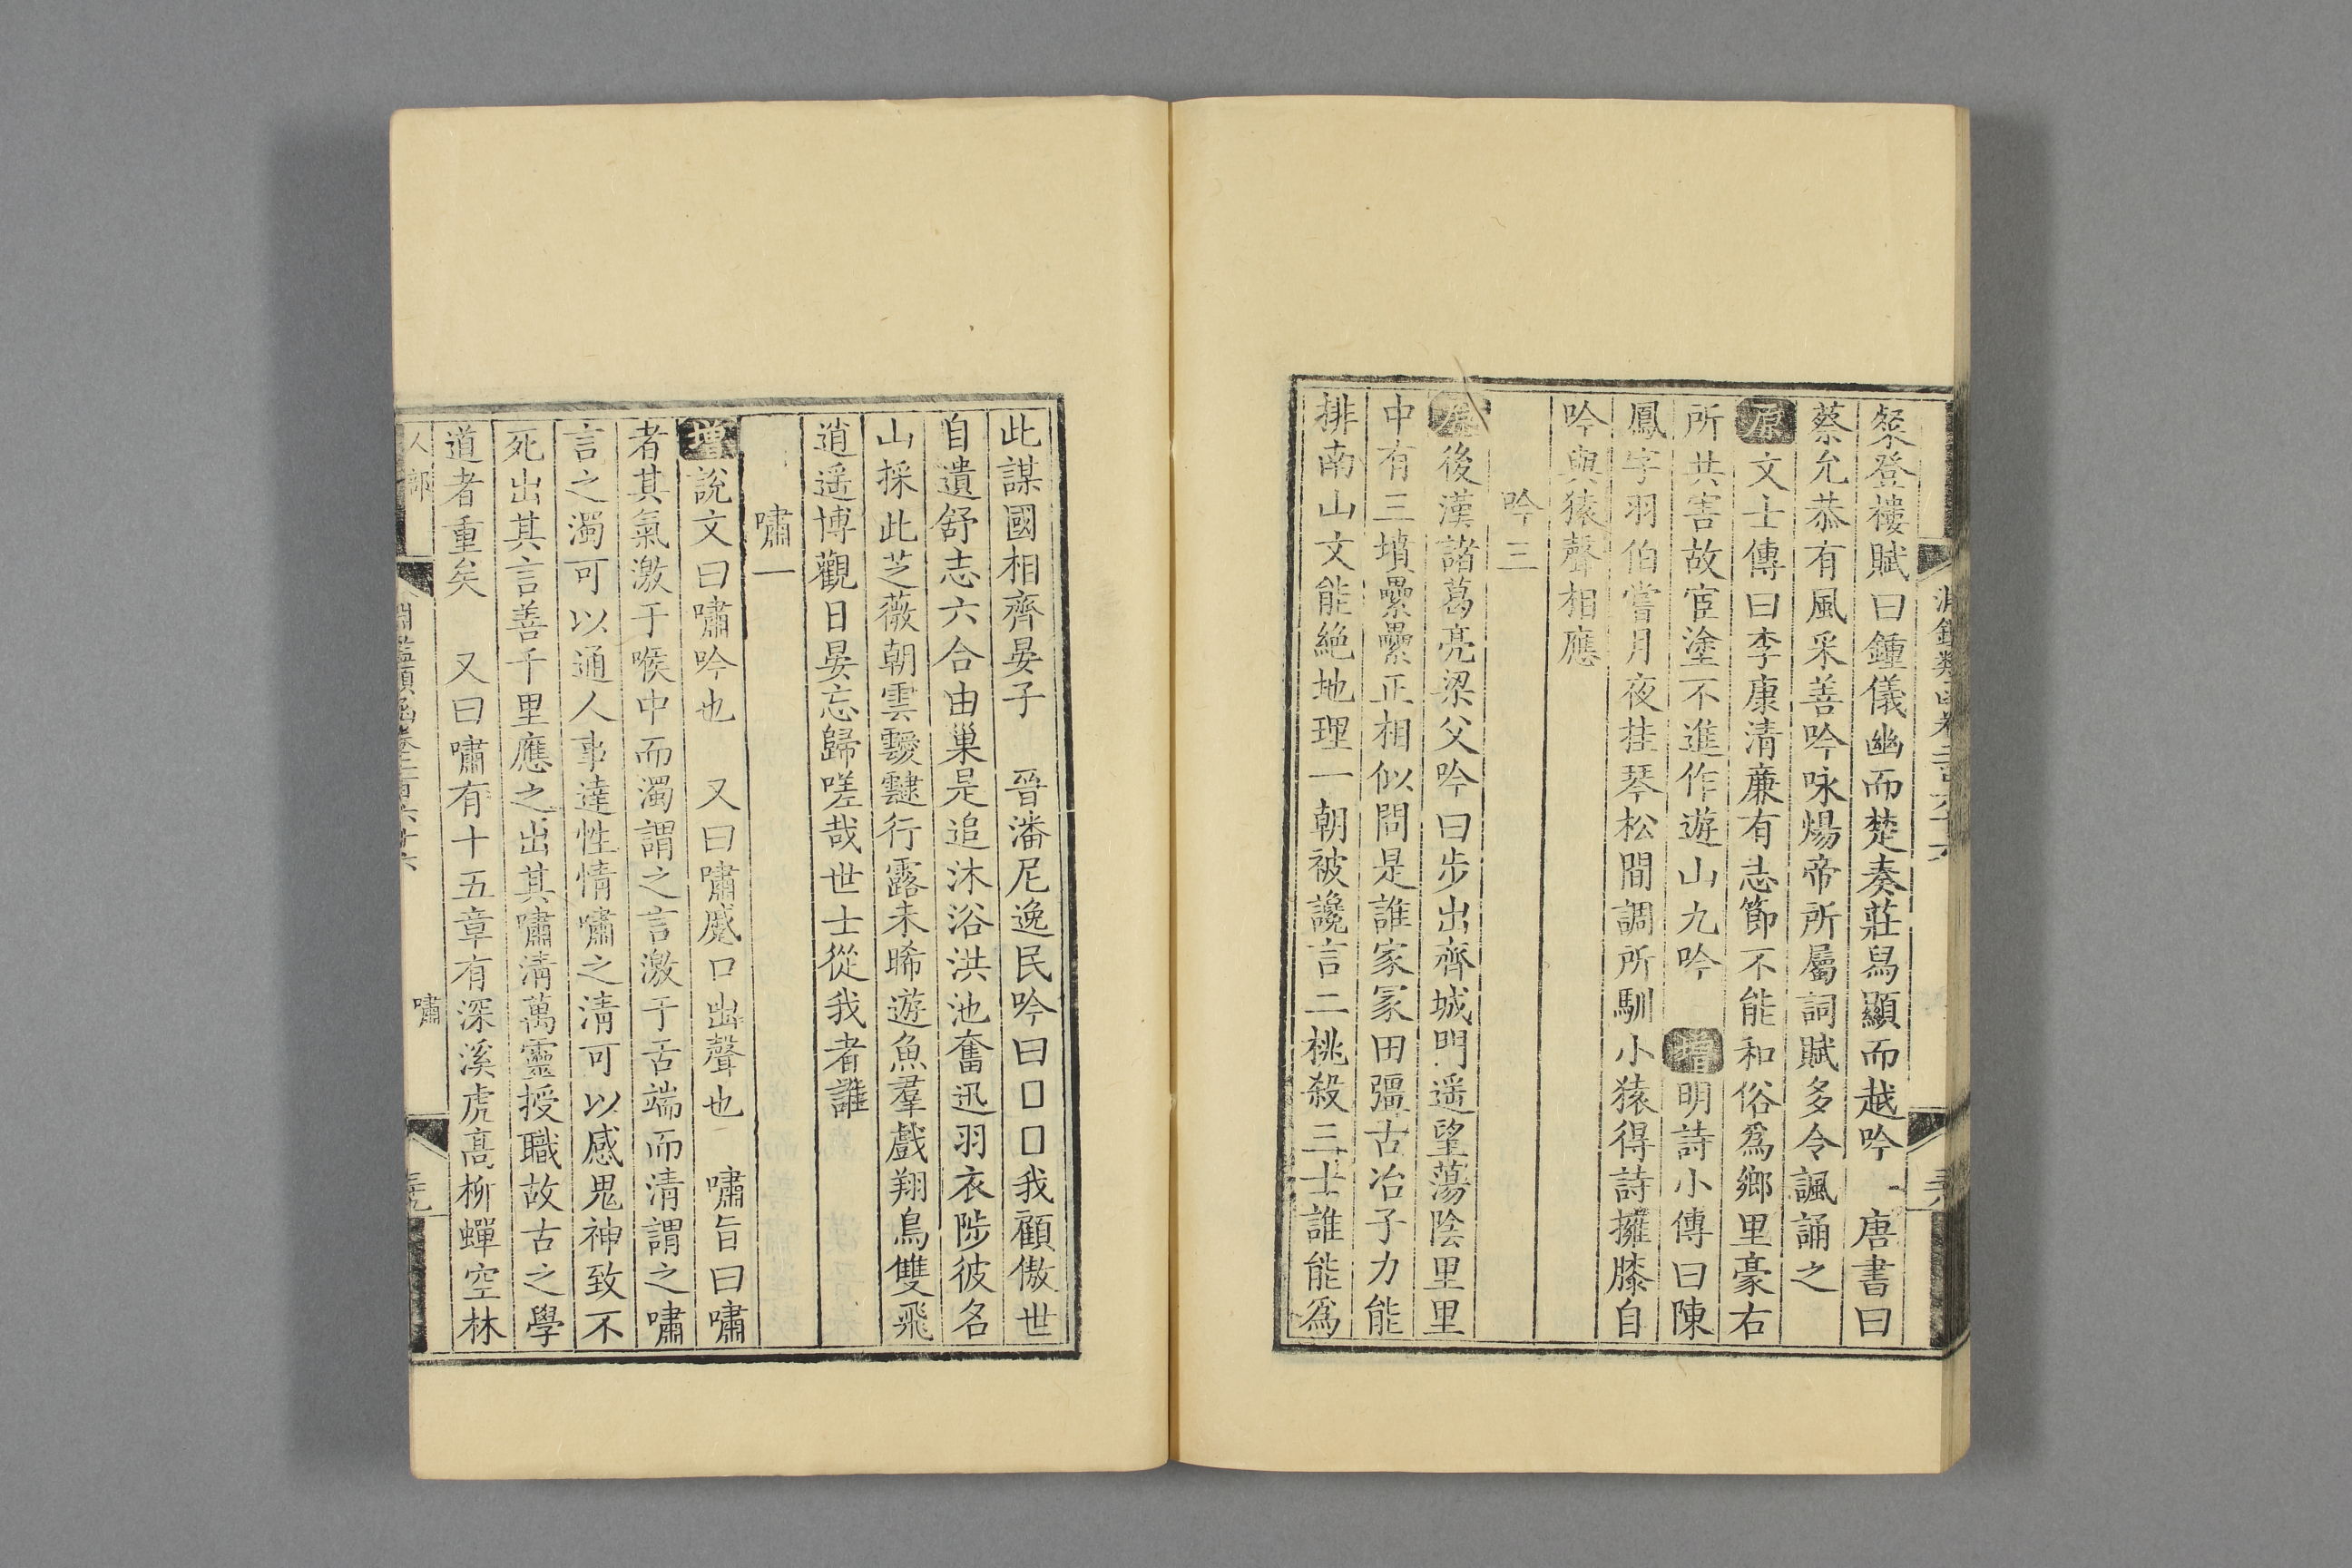 粲登樓賦曰鍾儀幽而楚奏莊舄顯而越吟 唐書曰
蔡允恭有風采善吟咏煬帝所屬詞賦多令諷誦之
原文士傳曰李康清廉有志節不能和俗爲鄉里豪右
所共害故宦塗不進作遊山九吟 增明詩小傳曰陳
鳳字羽伯嘗月夜挂琴松間調所馴小猿得詩擁膝自
吟與猿聲相應
吟三
原後漢諸葛亮梁父吟曰步出齊城門遥望蕩陰里里
中有三墳纍纍正相似問是誰家冡田彊古冶子力能
排南山文能絶地理一朝被讒言二桃殺三士誰能爲
此謀國相齊晏子 晉潘尼逸民吟曰□□我顧傲世
自遺舒志六合由巢是追沐浴洪池奮迅羽衣陟彼名
山採此芝薇朝雲靉靆行露未晞遊魚羣戲翔鳥雙飛
逍遥博觀日晏忘歸嗟哉世士從我者誰
嘯一
增說文曰嘯吟也 又曰嘯蹙口出聲也 嘯旨曰嘯
者其氣激于喉中而濁謂之言激于舌端而清謂之嘯
言之濁可以通人事達性情嘯之清可以感鬼神致不
死出其言善千里應之出其嘯清萬靈授職故古之學
道者重矣 又曰嘯有十五章有深溪虎高柳蟬空林
人部
淵鑑類函卷二百六十六
嘯